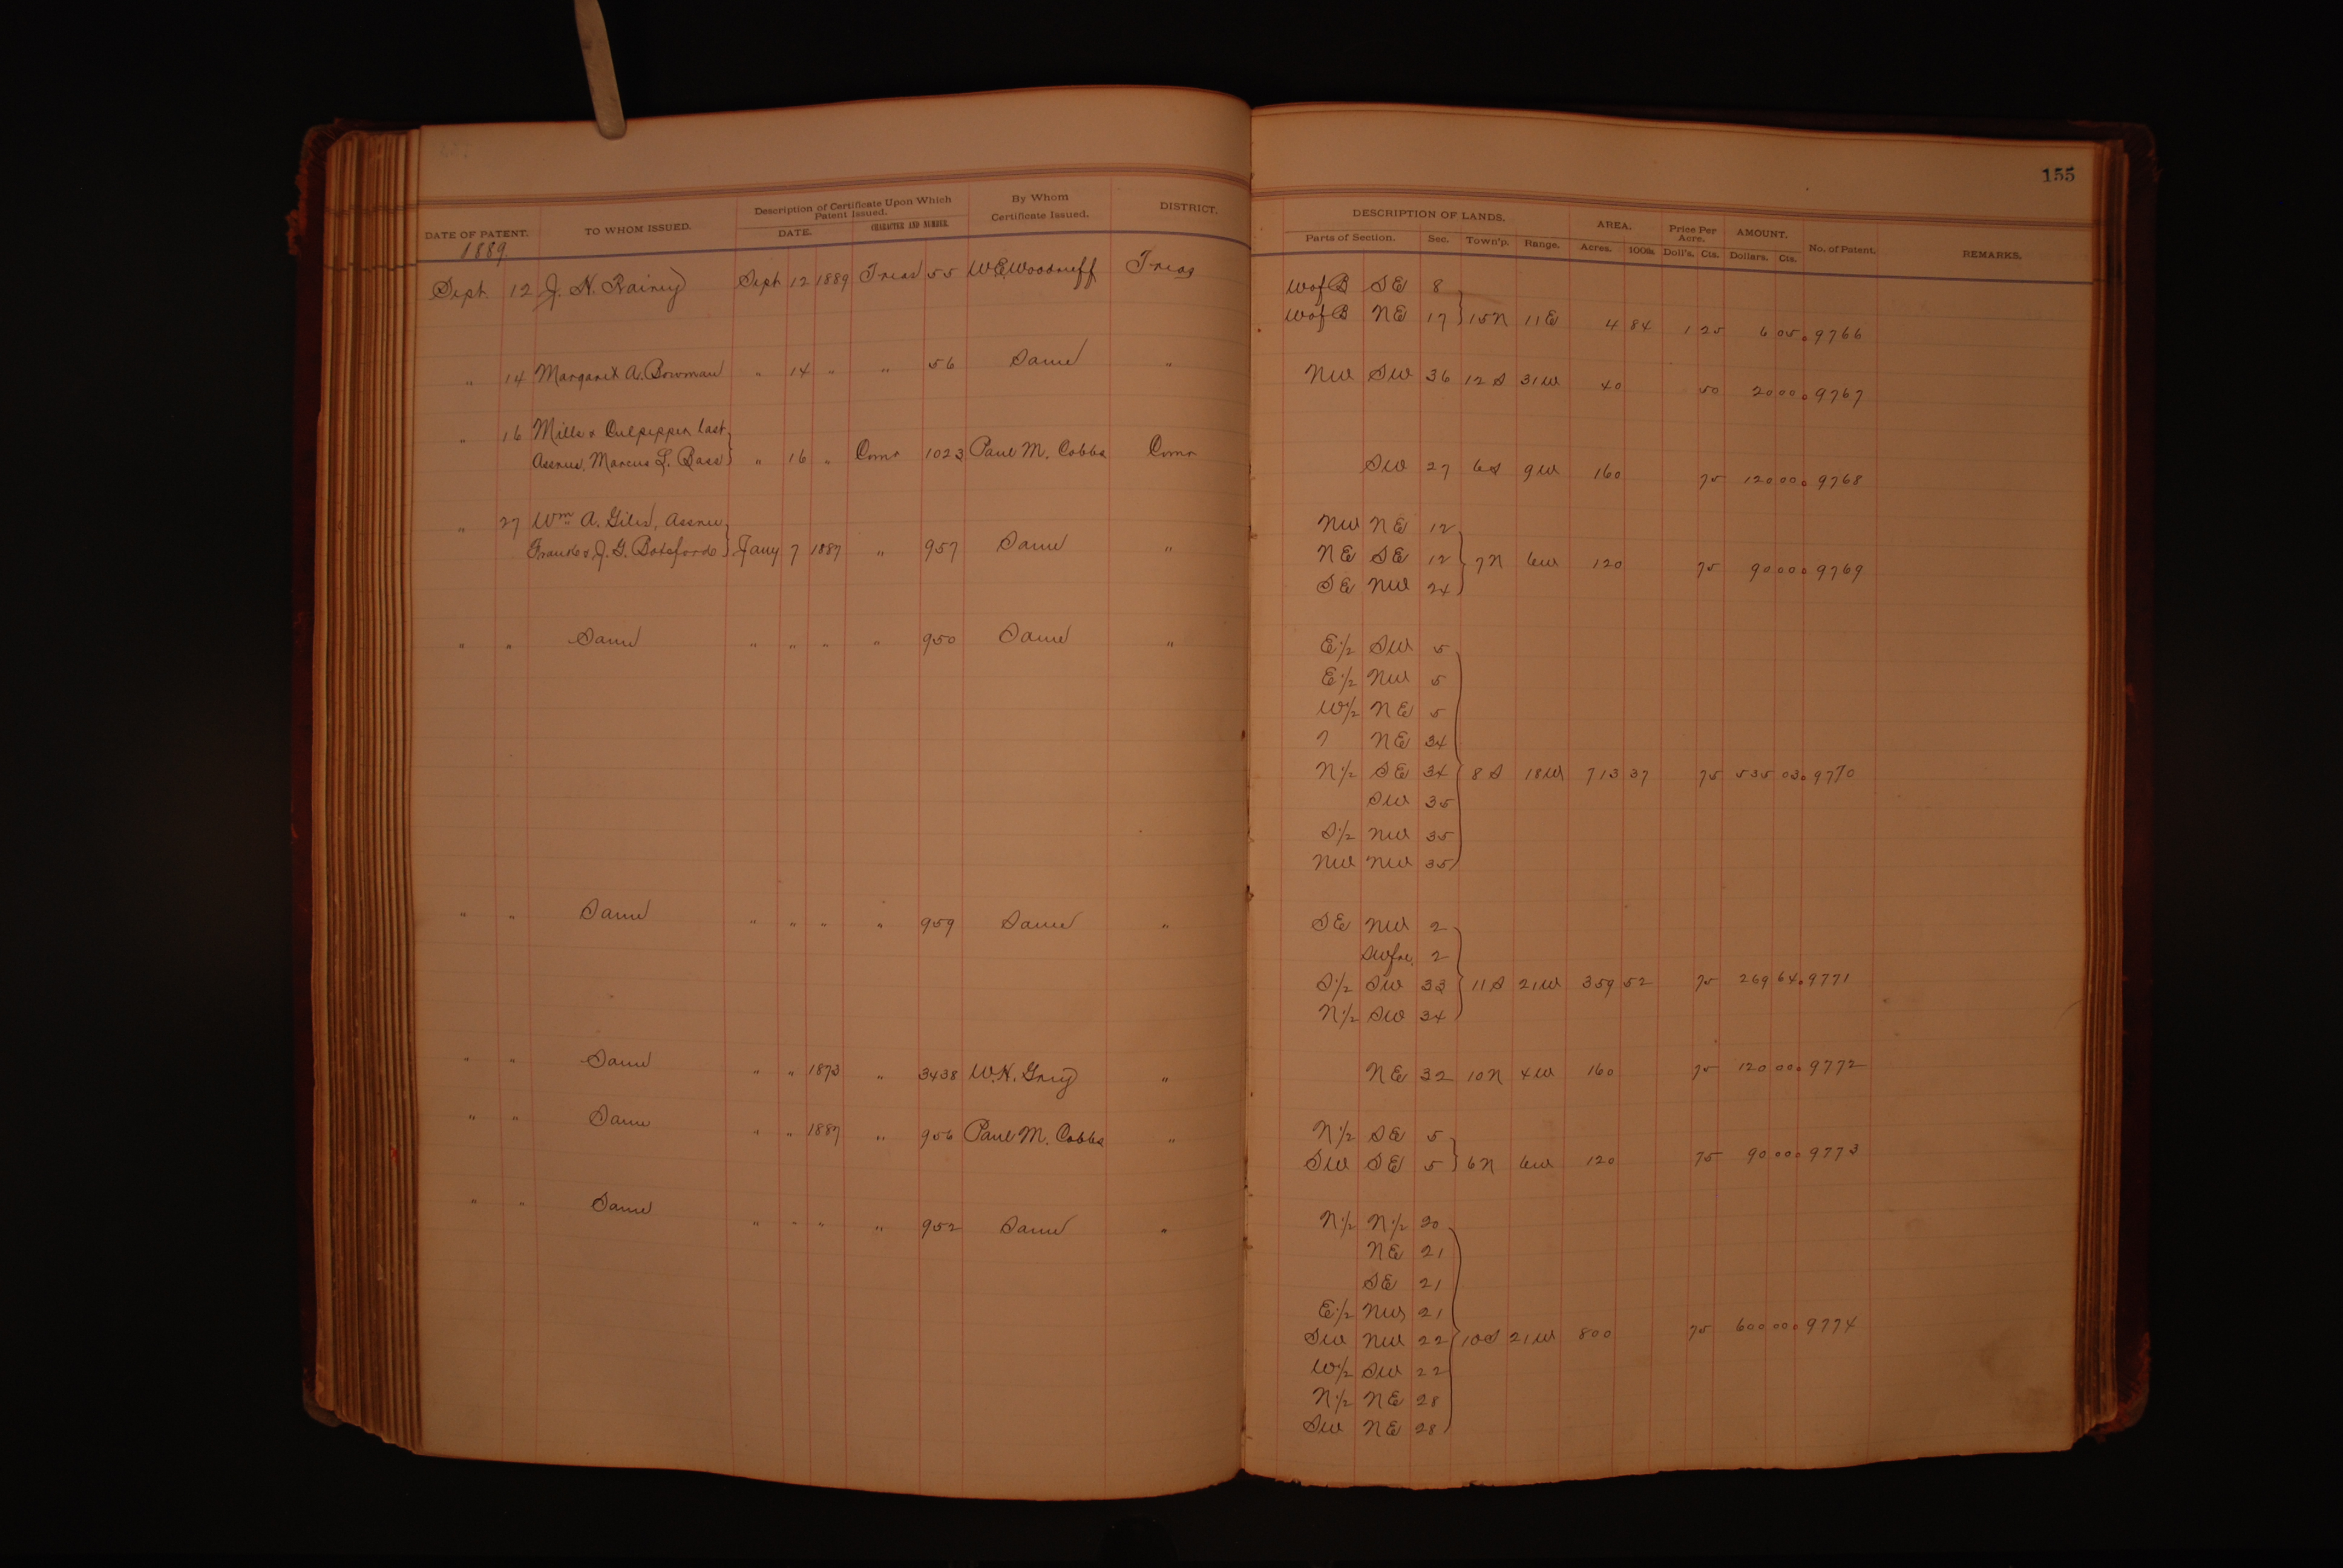 155
DATE OF PATENT. TO WHOM ISSUED. Description of Certificate Upon Which Patent Issued. DATE. CHARACTER AND NUMBER. By Whom Certificate Issued. DISTRICT. DESCRIPTION OF LANDS. Parts of Section. Sec. Town'p. Range. AREA. Acres. 100ds Price Per Acre. Doll's. Cts. AMOUNT. Dollars. Cts. No. of Patent. REMARKS.
1889
Sept 12 J. N. Rainey Sept 12 1889 Treas 55 W.E. Woodruff Treas W of B SE 8
W of B NE 17 } 15N 11E 4 84 1 25 6 05 9766
" 14 Margaret A. Bowman " 14 " " 56 Same " NW SW 36 12 S 31W 40 50 20 00 9767
" 16 Mills & Culpepper last
Assnee, Marcus L. Bass } " 16 " Comr 1023 Paul M. Cobbs Comr SW 27 6S 9W 160 75 120 00 9768
" 27 Wm A. Giles, Assnee NW NE 12
Frank & J. G. Botsford } Jany 7 1887 " 957 Same " NE SE 12 } 7N 6W 120 75 90 00 9769
SE NW 24
" " Same " " " " 950 Same " E 1/2 SW 5
E 1/2 NW 5
W 1/2 NE 5
? NE 34
N 1/2 SE 34 } 8 S 18W 713 37 75 535 03 9770
SW 35
S 1/2 NW 35
NW NW 35
" " Same " " " " 959 Same " SE NW 2
SW frl. 2
S 1/2 SW 33 } 11 S 21W 359 52 75 269 64 9771
N 1/2 SW 34
" " Same " " 1873 " 3438 W.H. Grey " NE 32 10N 4W 160 75 120 00 9772
" " Same " " 1887 " 956 Paul M. Cobbs " N 1/2 SE 5
SW SE 5 } 6N 6W 120 75 90 00 9773
" " Same " " " " 952 Same " N 1/2 N 1/2 20
NE 21
SE 21
E 1/2 NW 21
SW NW 22 } 10S 21W 800 75 600 00 9774
W 1/2 SW 22
N 1/2 NE 28
SW NE 28